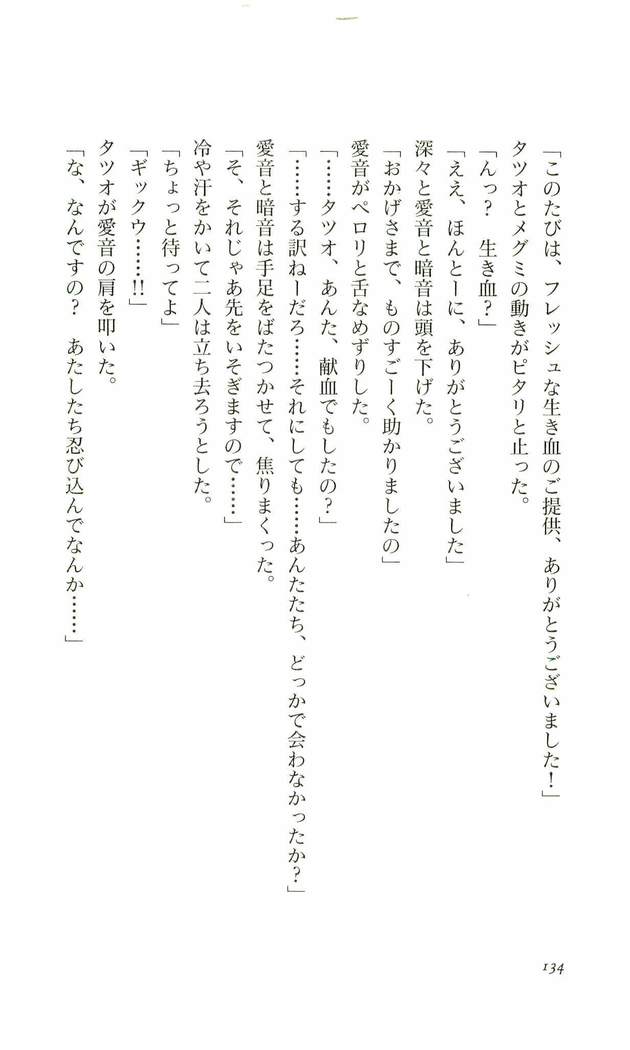 「このたびは、フレッシュな生き血のご提供、ありがとうございました！」
タツオとメグミの動きがピタリと止った。
「んっ？　生き血？」
「ええ、ほんとーに、ありがとうございました」
深々と愛音と暗音は頭を下げた。
「おかげさまで、ものすごーく助かりましたの」
愛音がペロリと舌なめずりした。
「……タツオ、あんた、献血でもしたの？」
「……する訳ねーだろ……それにしても……あんたたち、どっかで会わなかったか？」
愛音と暗音は手足をばたつかせて、焦りまくった。
「そ、それじゃあ先をいそぎますので……」
冷や汗をかいて二人は立ち去ろうとした。
「ちょっと待ってよ」
「ギックウ……!!」
タツオが愛音の肩を叩いた。
「な、なんですの？　あたしたち忍び込んでなんか……」
134